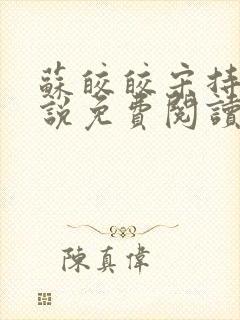 蘇皎皎宋持
說免費閱讀
陳真偉